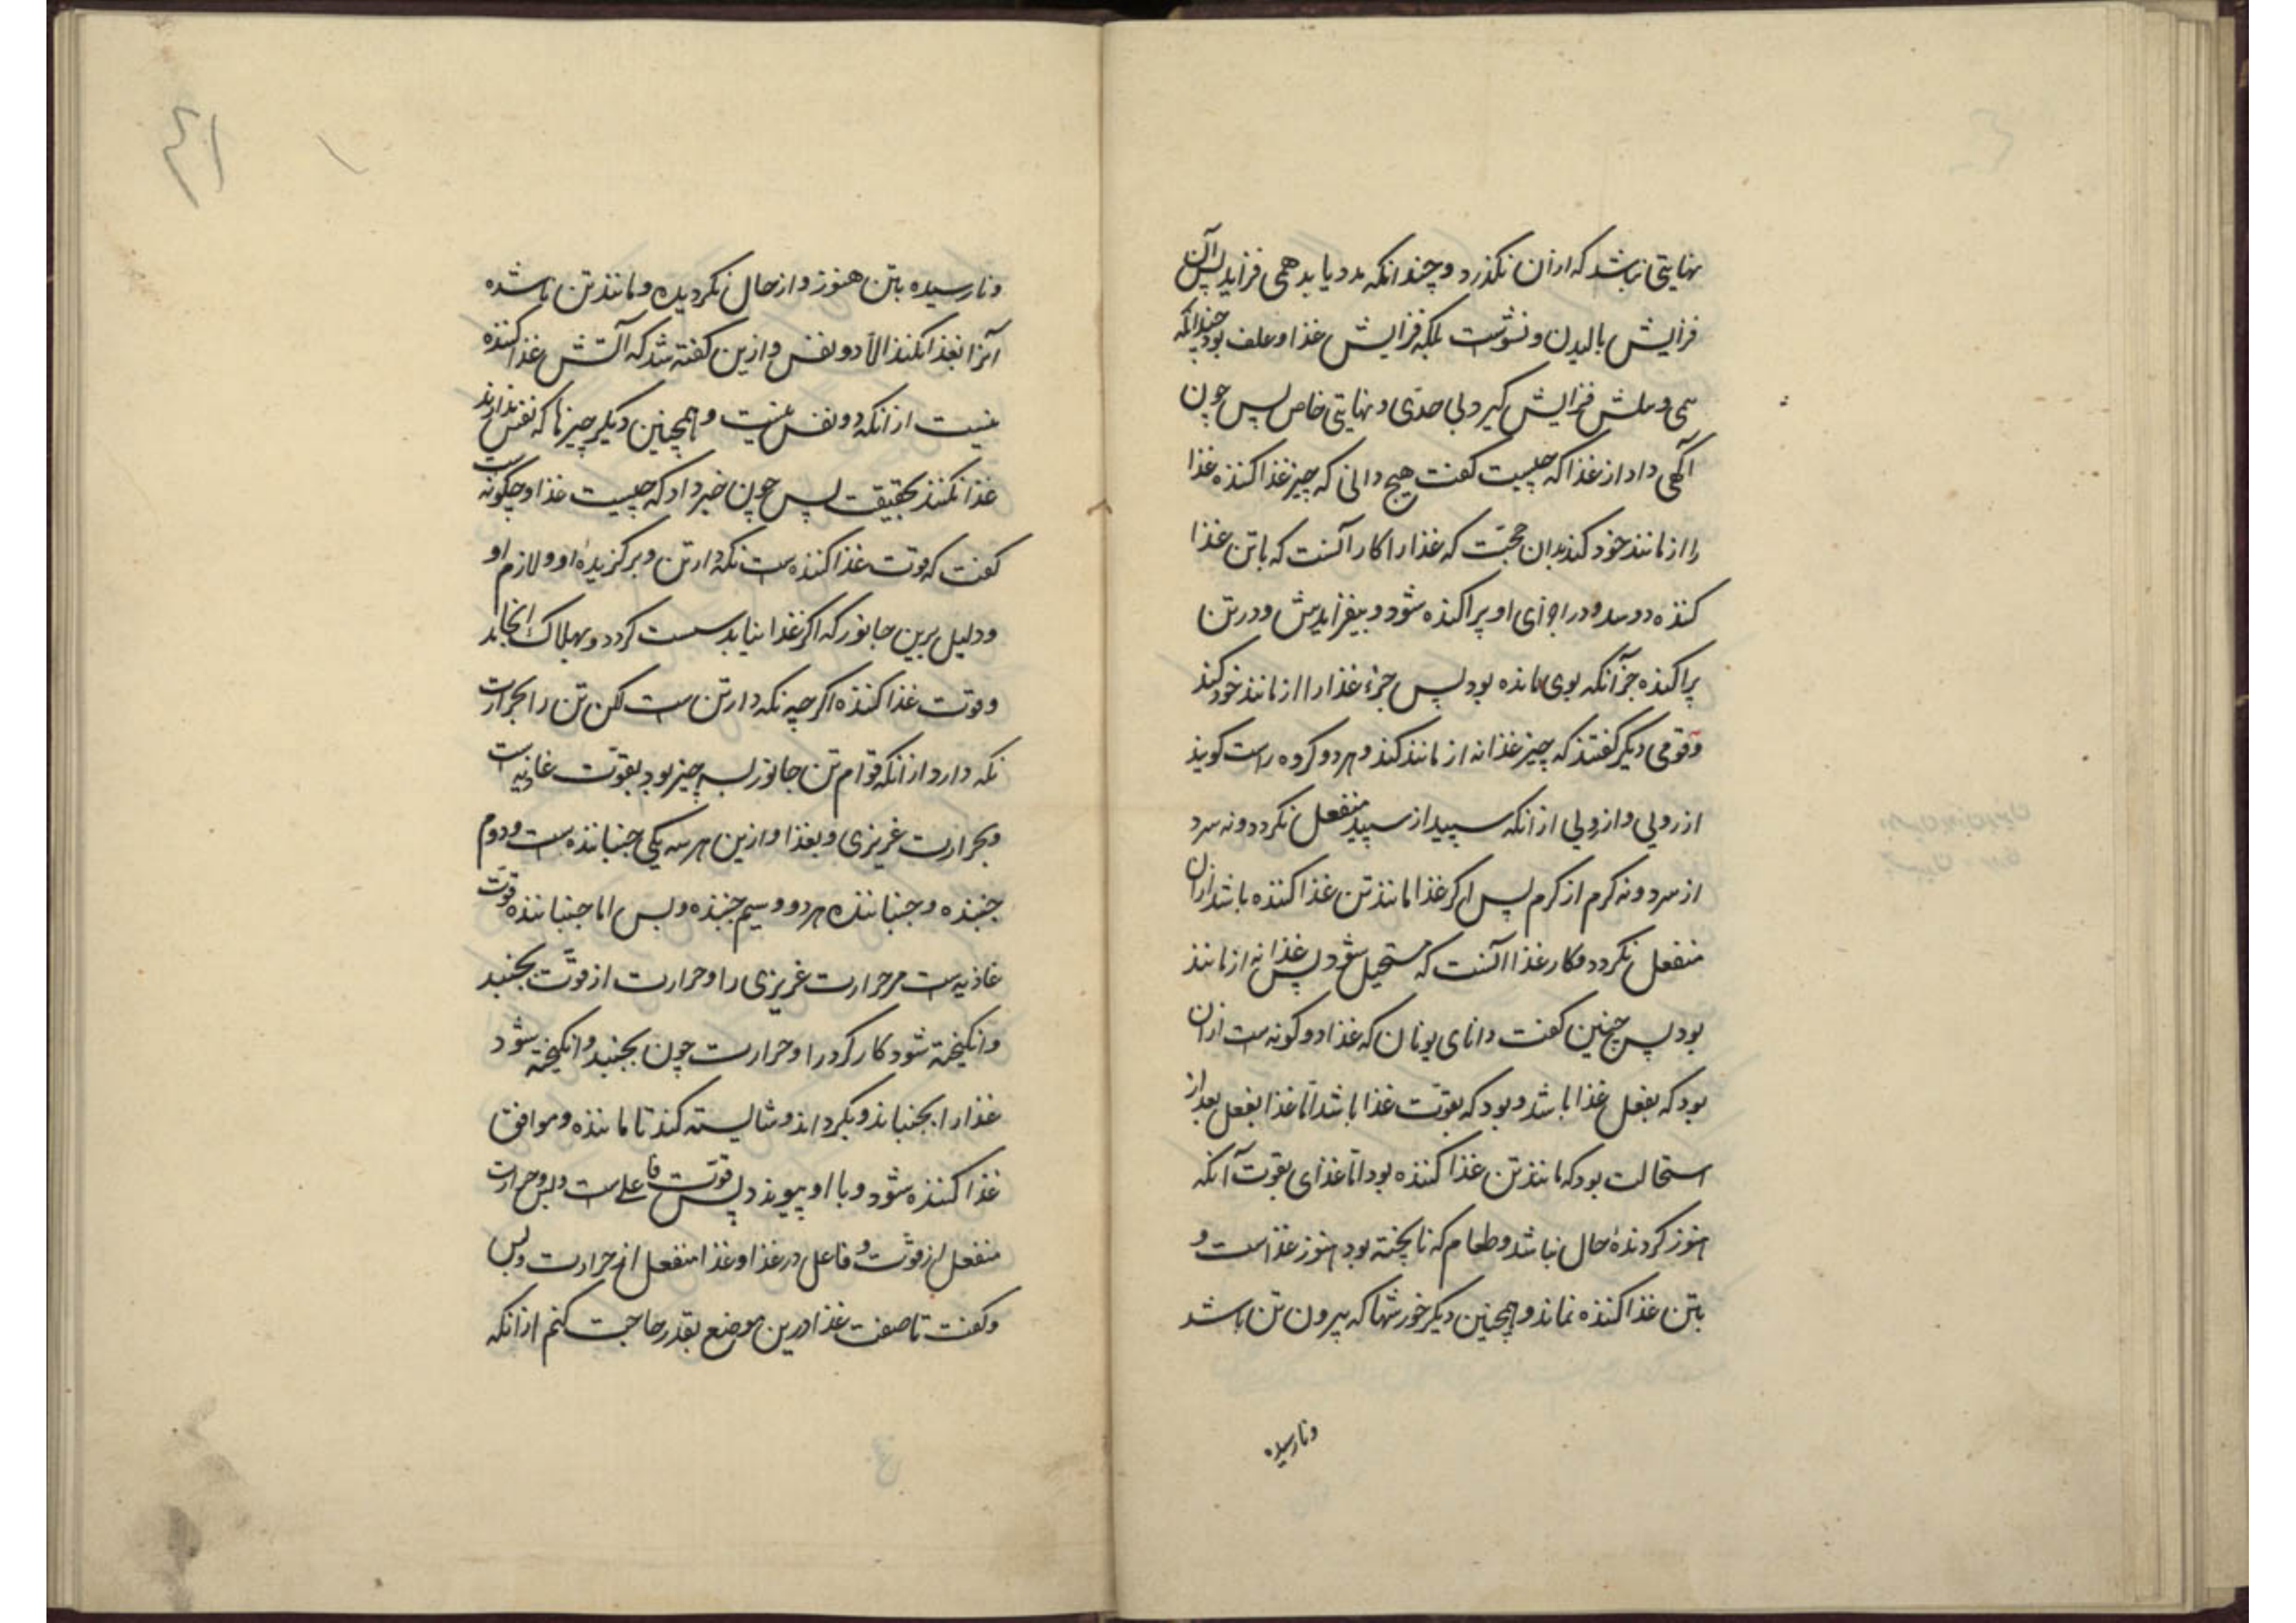 نهایتی نباشد که ازان نگذرد و چندانکه مدد یابد همی فزاید پس آن
فزایش بالیدن و نشوست بلکه فزایش غذا و علف بود چندانکه
همی فزایش گیرد بی حدّی و نهایتی خاص پس چون
آگهی داد از غذا که چیست گفت هیچ دانی که چیز غذا کننده غذا
را از مانند خود کند بدان حجّت که غذا را کار آنست که با تن غذا
کننده دوسد و در اجزای او پراکنده شود و بیفزایدش و در تن
پراکنده جز آنکه بوی ماننده بود پس جزء غذا را از مانند خود کند
و قومی دیگر گفتند که چیز غذا نه از مانند کند و هر دو گروه راست گویند
از رویی و از رویی ازانکه سپید از سپید منفعل نگردد و نه سرد
از سرد و نه گرم از گرم پس اگر غذا مانند تن غذا کننده باشد ازان
منفعل نگردد و کار غذا آنست که مستحیل شود پس غذا نه از مانند
بود پس چنین گفت دانای یونان که غذا دو گونه ست ازان
بود که بفعل غذا باشد و بود که بقوّت غذا باشد امّا غذا بفعل بعد از
استحالت بود که مانند تن غذا کننده بود امّا غذای بقوت آنکه
هنوز گردندهٔ حال نباشد و طعام که ناپخته بود هنوز غذاست و
بتن غذا کننده نماند و همچنین دیگر خورشها که بیرون تن باشد
ونارسیده
ونارسیده بتن هنوز و از حال نگردیده و مانند تن ناشده
آنرا بغذا نکند الّا ذو نفس و ازین گفته شد که آتش غذا کننده
نیست ازانکه ذو نفس نیست و همچنین دیگر چیزها که نفس ندارند
غذا نکنند بحقیقت پس چون خبر داد که چیست غذا و چگونه ست
گفت که قوت غذا کننده ست نگه دار تن و برگزیدهٔ او و لازم او
و دلیل برین جانور که اگر غذا نیابد سست گردد و بهلاک انجامد
و قوّت غذا کننده اگر چه نگه دار تن ست لکن تن را بحرارت
نگه دارد ازانکه قوام تن جانور بسه چیز بود بقوّت غاذیه ست
و بحرارت غریزی و بغذا و ازین هر سه یکی جنباننده ست و دوم
جنبنده و جنباننده هر دو و سیم جنبنده و بس اما جنباننده قوّت
غاذیه ست مر حرارت غریزی را و حرارت از قوّت بجنبد
وانگیخته شود کار کرد را و حرارت چون بجنبد وانگیخته شود
غذا را بجنباند و بگرداند و شایسته کند تا ماننده و موافق
غذا کننده شود و با او پیوندد پس قوّت فاعل ست و بس و حرارت
منفعل از قوّت و فاعل در غذا و غذا منفعل از حرارت و بس
وگفت تا صفت غذا درین موضع بقدر حاجت کنم ازانکه